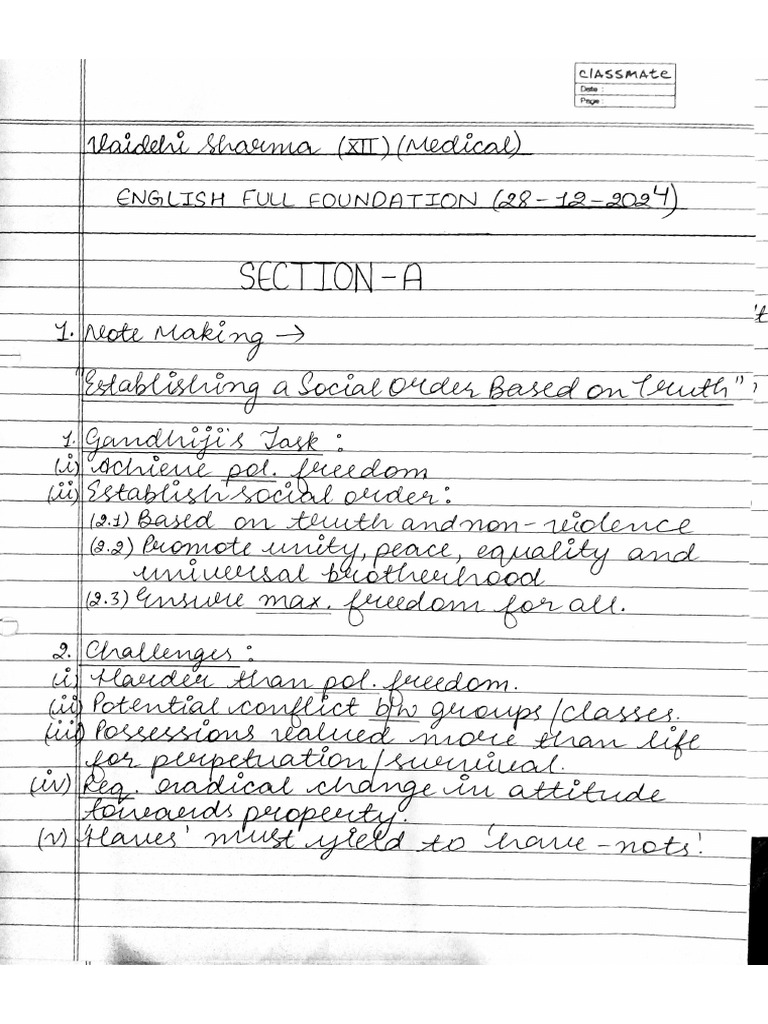 classmate
Date :
Page :
Vaidehi Sharma (XII) (Medical)
ENGLISH FULL FOUNDATION (28-12-2024)
SECTION-A
't
1. Note Making →
"Establishing a Social Order Based on Truth"
1. Gandhiji's Task :
(i) Achieve pol. freedom
(ii) Establish social order :
(2.1) Based on truth and non-violence
(2.2) Promote unity, peace, equality and
universal brotherhood
(2.3) Ensure max. freedom for all.
2. Challenges :
(i) Harder than pol. freedom.
(ii) Potential conflict b/w groups/classes.
(iii) Possessions valued more than life
for perpetuation/survival.
(iv) Req. radical change in attitude
towards property.
(v) 'Haves' must yield to 'have-nots'.